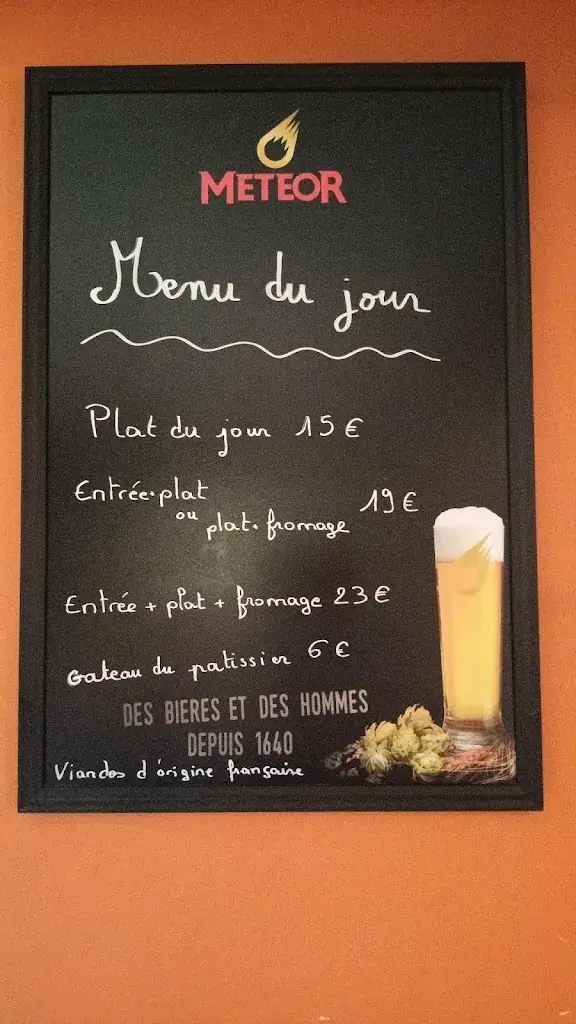 METEOR
Menu du jour
Plat du jour 15 €
Entrée.plat
ou plat.fromage 19 €
Entrée + plat + fromage 23 €
Gateau du patissier 6 €
DES BIERES ET DES HOMMES
DEPUIS 1640
Viandes d'origine française